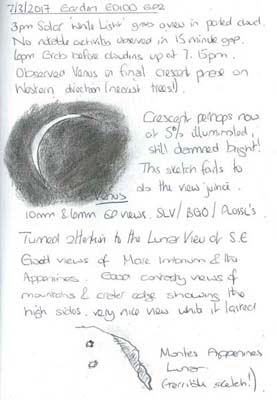 7/3/2017 Garden ED100 GP2
3pm Solar 'White Light' gaps view in patched cloud.
No notable activity observed in 15 minute gap.
6pm Grab before clouding up at 7.15pm.
Observed Venus in final crescent phase on
Western direction (nearest trees!).
Crescent perhaps now
at 5% illuminated,
still damned bright!
This sketch fails to
do the view justice.
Venus
10mm & 6mm EP views. SLV/BGO/Plossl's
Turned attention to the Lunar View of S.E
Good views of Mare Imbrium & the
Appenines. Good contrasty views of
mountains & crater edge showing the
high sides. very nice view while it lasted
Montes Appenines
Lunar
(terrible sketch!)